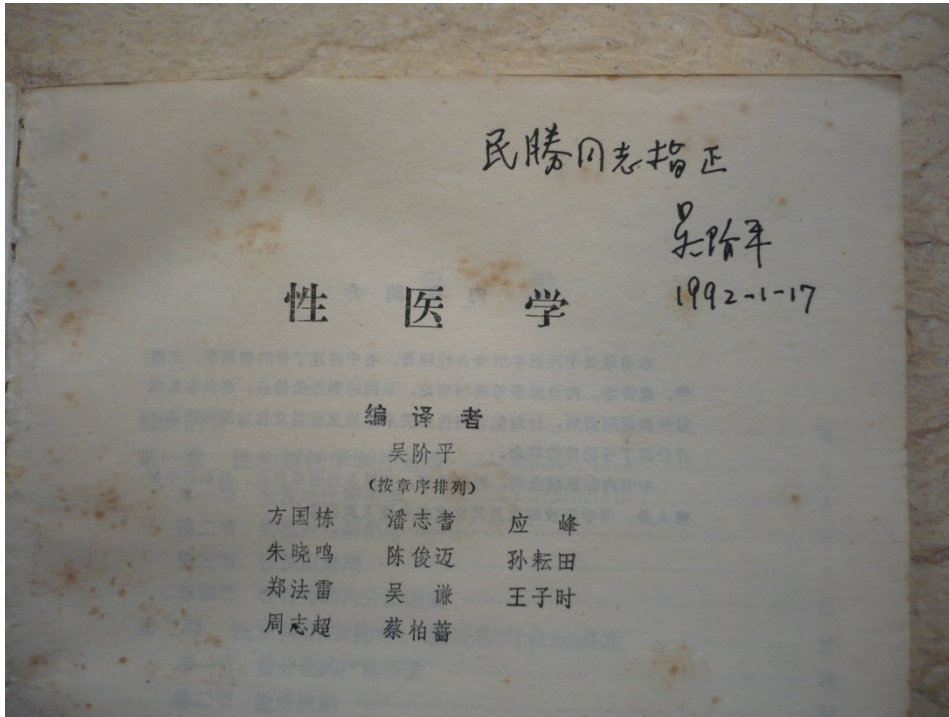 民勝同志指正
吴阶平
1992-1-17
性医学
编译者
吴阶平
(按章序排列)
方国栋 潘志耆 应峰
朱晓鸣 陈俊迈 孙耘田
郑法雷 吴谦 王子时
周志超 蔡柏蔷